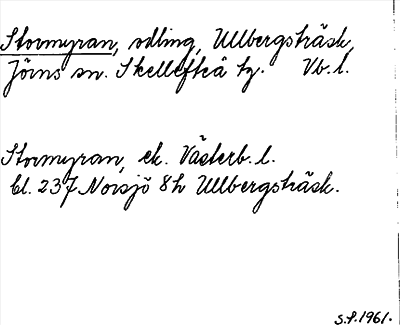 Stormyran, odling, Ullbergsträsk,
Jörns sn. Skellefteå tg. Vb.l.
Stormyran, ek. Västerb.l.
bl. 237 Norsjö 8h Ullbergsträsk.
S.P.1961.